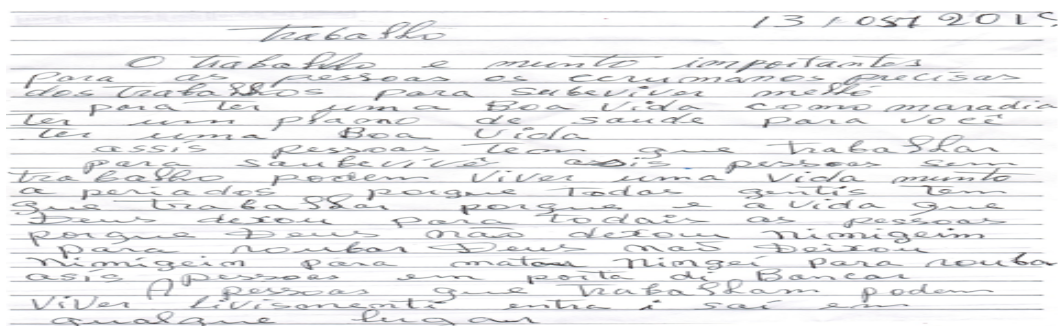 13/05/2015
Trabalho
O trabalho e munto importantes
para as pessoas os cerumanos precisas
dos trabalhos para sobeviver melhó
para ter uma Boa Vida como maradia
ter um plaono de saude para você
ter uma Boa Vida
assis pessoas tem que trabalhar
para saubevivê assis pessoas sem
trabalho podem viver uma vida munto
a periados porque todas gentis tem
que trabalhar porque e a vida que
Deus dexou para todais as pessoas
porque Deus não dexou nimigeim
para roubar Deus não Deixou
nimigeim para matar ningei para rouba
asis pessoas em porta di Bancar
A pessoas que trabalham podem
viver livisomenti entra i sai em
qualque lugar